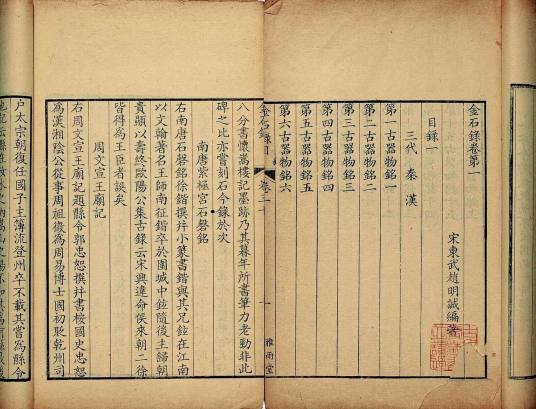 金石錄卷第一
宋東武趙明誠編著
目錄一
三代 秦 漢
第一古器物銘一
第二古器物銘二
第三古器物銘三
第四古器物銘四
第五古器物銘五
第六古器物銘六
金石錄 卷三十 一 雅雨堂
八分書懷嵩樓記墨跡乃其暮年所書筆力老勁非此
碑之比亦嘗刻石今錄於次
南唐紫極宮石磬銘
右南唐石磬銘徐鍇撰并小篆書鍇與其兄鉉在江南
以文翰著名王師南征鍇卒於圍城中鉉隨後主歸朝
貴顯以壽終歐陽公集古錄云宋興違命侯來朝二徐
皆得為王臣者誤矣
周文宣王廟記
右周文宣王廟記題縣令郭忠恕撰并書按國史忠恕
為漢湘陰公從事周祖徵為周易博士國初貶乾州司
戶太宗朝復任國子主簿流登州卒不載其嘗為縣令